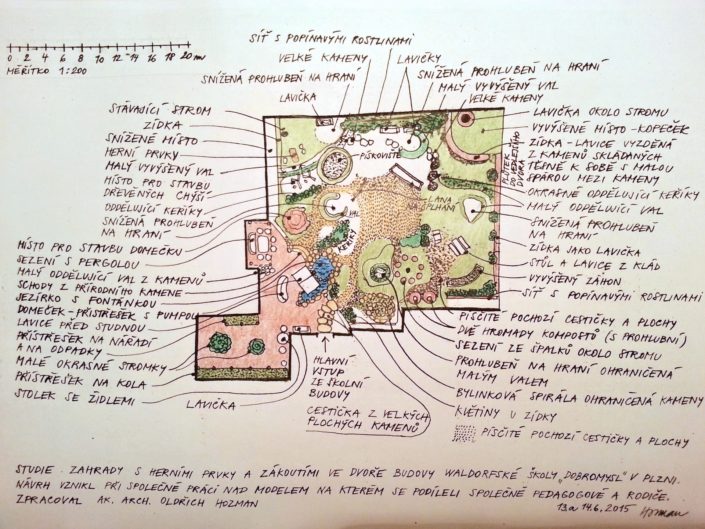 0 2 4 6 8 10 12 14 16 18 20 m
MĚŘÍTKO 1:200
SÍŤ S POPÍNAVÝMI ROSTLINAMI
VELKÉ KAMENY
LAVIČKY
SNÍŽENÁ PROHLUBEŇ NA HRANÍ
SNÍŽENÁ PROHLUBEŇ NA HRANÍ
LAVIČKA
MALÝ VYVÝŠENÝ VAL
VELKÉ KAMENY
STÁVAJÍCÍ STROM
ZÍDKA
SNÍŽENÉ MÍSTO
HERNÍ PRVKY
MALÝ VYVÝŠENÝ VAL
MÍSTO PRO STAVBU
DŘEVĚNÝCH CHÝŠÍ
ODDĚLUJÍCÍ KEŘÍKY
SNÍŽENÁ PROHLUBEŇ
NA HRANÍ
MÍSTO PRO STAVBU DOMEČKU
SEZENÍ S PERGOLOU
MALÝ ODDĚLUJÍCÍ VAL Z KAMENŮ
SCHODY Z PŘÍRODNÍHO KAMENE
JEZÍRKO S FONTÁNKOU
DOMEČEK-PŘÍSTŘEŠEK S PUMPOU
LAVICE PŘED STUDNOU
PŘÍSTŘEŠEK NA NÁŘADÍ
A NA ODPADKY
MALÉ OKRASNÉ STROMKY
PŘÍSTŘEŠEK NA KOLA
STOLEK SE ŽIDLEMI
LAVIČKA
PÍSKOVIŠTĚ
VAL
KEŘÍKY
LANA
NA ŠPLHÁNÍ
HLAVNÍ
VSTUP
ZE ŠKOLNÍ
BUDOVY
CESTIČKA Z VELKÝCH
PLOCHÝCH KAMENŮ
LAVIČKA OKOLO STROMU
VYVÝŠENÉ MÍSTO - KOPEČEK
ZÍDKA - LAVICE VYZDĚNÁ
Z KAMENŮ SKLÁDANÝCH
TĚSNĚ K SOBĚ S MALOU
SPÁROU MEZI KAMENY
OKRASNÉ ODDĚLUJÍCÍ KEŘÍKY
MALÝ ODDĚLUJÍCÍ VAL
SNÍŽENÁ PROHLUBEŇ
NA HRANÍ
ZÍDKA JAKO LAVIČKA
STŮL A LAVICE Z KLÁD
VYVÝŠENÝ ZÁHON
SÍŤ S POPÍNAVÝMI ROSTLINAMI
PÍSČITÉ POCHOZÍ CESTIČKY A PLOCHY
DVĚ HROMADY KOMPOSTŮ (S PROHLUBNÍ)
SEZENÍ ZE ŠPALKŮ OKOLO STROMU
PROHLUBEŇ NA HRANÍ OHRANIČENÁ
MALÝM VALEM
BYLINKOVÁ SPIRÁLA OHRANIČENÁ KAMENY
KVĚTINY U ZÍDKY
PÍSČITÉ POCHOZÍ CESTIČKY A PLOCHY
STUDIE ZAHRADY S HERNÍMI PRVKY A ZÁKOUTÍMI VE DVOŘE BUDOVY WALDORFSKÉ ŠKOLY „DOBROMYSL" V PLZNI.
NÁVRH VZNIKL PŘI SPOLEČNÉ PRÁCI NAD MODELEM NA KTERÉM SE PODÍLELI SPOLEČNĚ PEDAGOGOVÉ A RODIČE.
ZPRACOVAL AK. ARCH. OLDŘICH HOZMAN
13 a 14.6.2015 Hozman